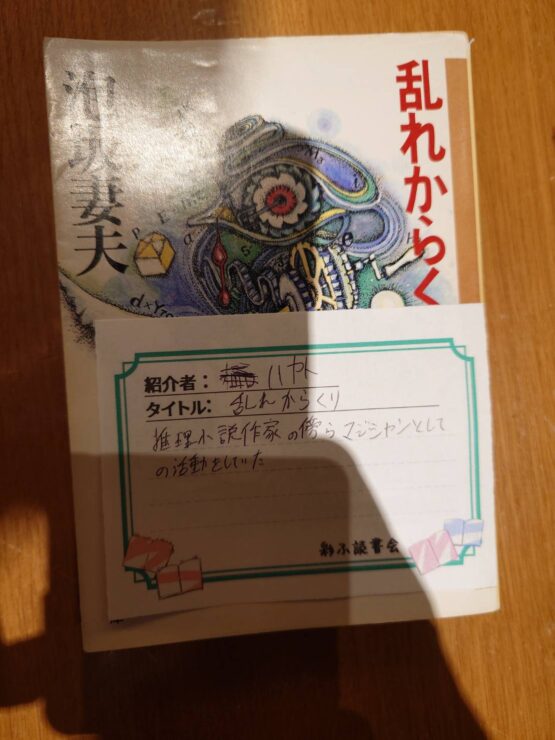 乱れからく
泡坂妻夫
紹介者：
タイトル：乱れからくり
推理小説作家の傍らマジシャンとして
の活動をしていた
彩ふ読書会